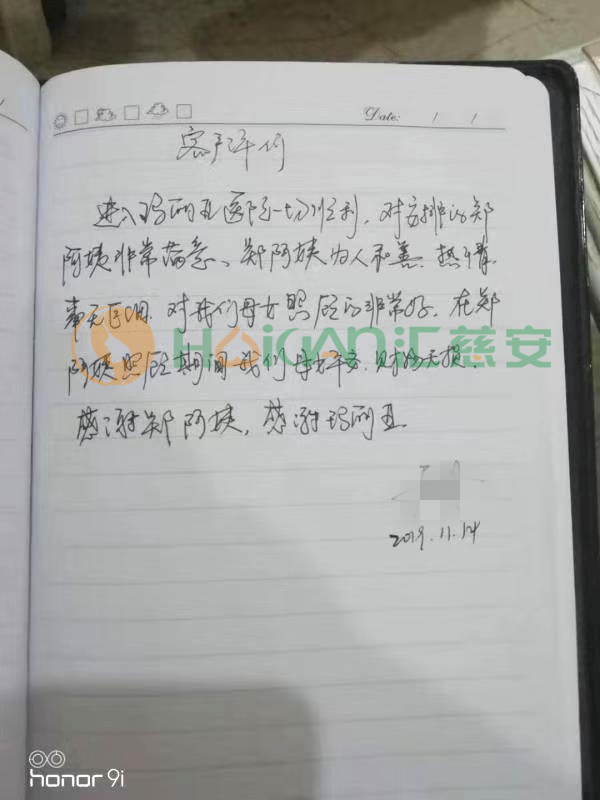 Date: / /
客户评价
进入玛丽亚医院一切顺利,对安排的郑
阿姨非常满意、郑阿姨为人和善.热情.
事无巨细.对我们母女照顾的非常好.在郑
阿姨照顾期间我们母女平安.财物无损.
感谢郑阿姨,感谢玛丽亚.
2019.11.14
HAICIAN汇慈安
honor 9i